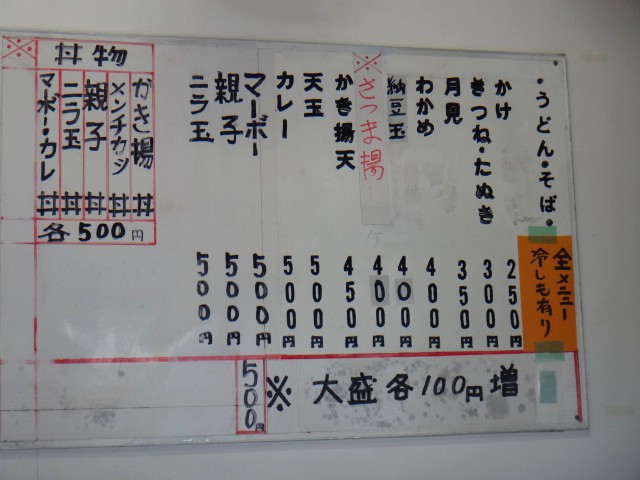 ・うどん・そば・
全メニュー
冷しも有り
かけ 250円
きつね・たぬき 300円
月見 350円
わかめ 400円
納豆玉 400円
※さつま揚 400円
かき揚天 450円
天玉 500円
カレー 500円
マーボー 500円
親子 500円
ニラ玉 500円
※大盛各100円増
500円
※丼物
かき揚丼
メンチカツ丼
親子丼
ニラ玉丼
マーボー・カレー丼
各500円